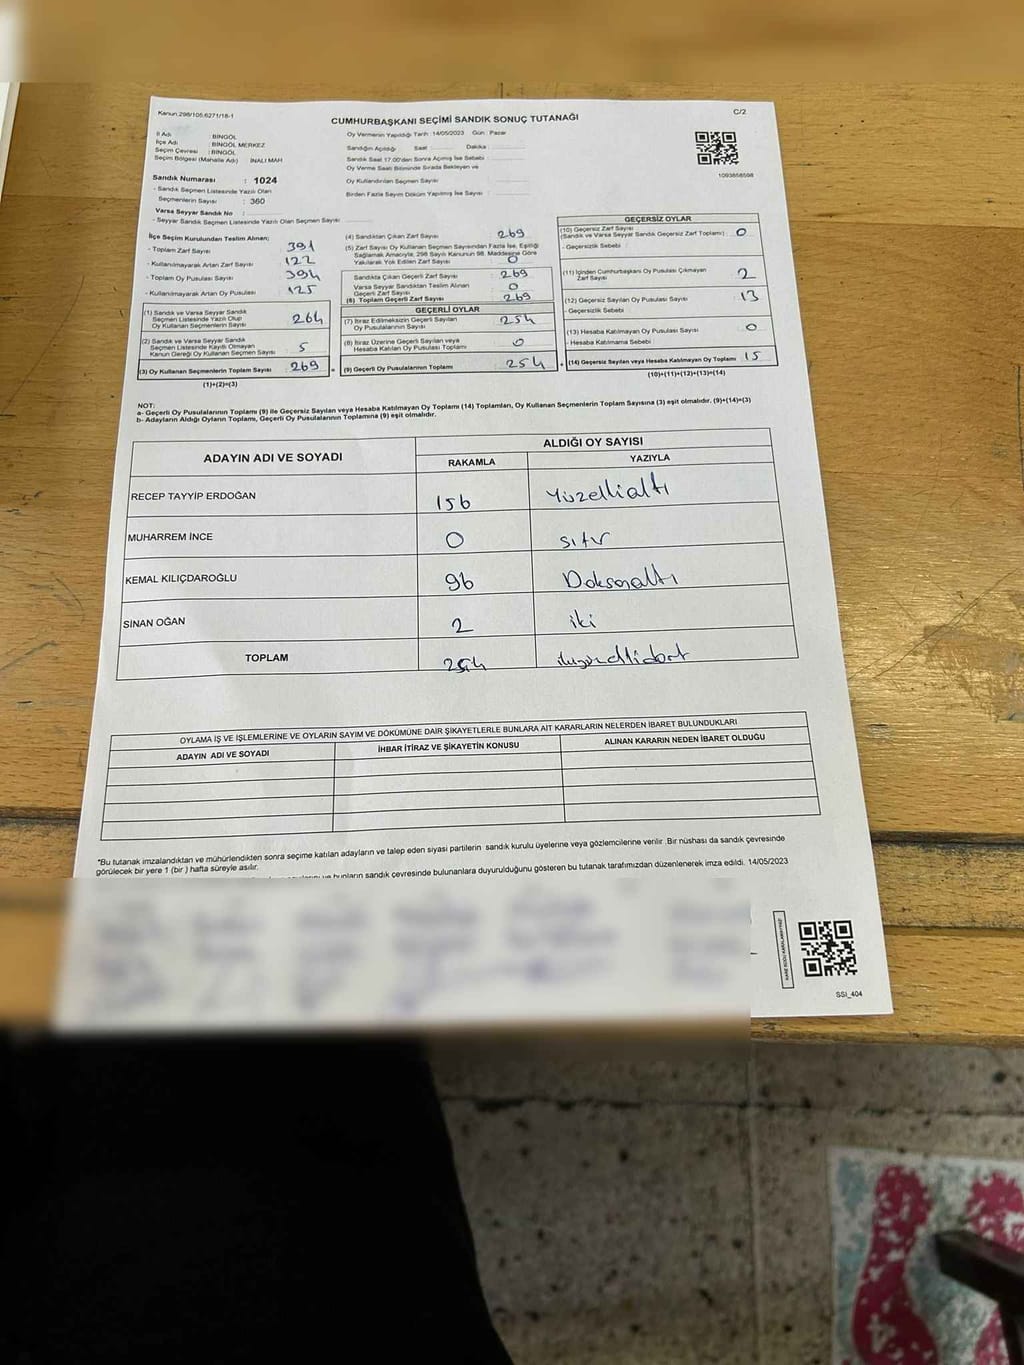 Kanun:298/105,6271/18-1
CUMHURBAŞKANI SEÇİMİ SANDIK SONUÇ TUTANAĞI
C/2
İl Adı : BİNGÖL
İlçe Adı : BİNGÖL MERKEZ
Seçim Çevresi : BİNGÖL
Seçim Bölgesi (Mahalle Adı) İNALI MAH
Sandık Numarası : 1024
- Sandık Seçmen Listesinde Yazılı Olan
Seçmenlerin Sayısı : 360
Varsa Seyyar Sandık No :
- Seyyar Sandık Seçmen Listesinde Yazılı Olan Seçmen Sayısı
Oy Vermenin Yapıldığı Tarih :14/05/2023 Gün : Pazar
Sandığın Açıldığı Saat : Dakika :
Sandık Saat 17:00'den Sonra Açılmış İse Sebebi :
Oy Verme Saati Bitiminde Sırada Bekleyen ve
Oy Kullandırılan Seçmen Sayısı :
Birden Fazla Sayım Döküm Yapılmış İse Sayısı :
1093858598
İlçe Seçim Kurulundan Teslim Alınan;
- Toplam Zarf Sayısı : 391
- Kullanılmayarak Artan Zarf Sayısı : 122
- Toplam Oy Pusulası Sayısı : 394
- Kullanılmayarak Artan Oy Pusulası : 125
(1) Sandık ve Varsa Seyyar Sandık
Seçmen Listesinde Yazılı Olup
Oy Kullanan Seçmenlerin Sayısı : 264
(2) Sandık ve Varsa Seyyar Sandık
Seçmen Listesinde Kayıtlı Olmayan
Kanun Gereği Oy Kullanan Seçmen Sayısı : 5
(3) Oy Kullanan Seçmenlerin Toplam Sayısı : 269
(1)+(2)=(3)
(4) Sandıktan Çıkan Zarf Sayısı : 269
(5) Zarf Sayısı Oy Kullanan Seçmen Sayısından Fazla İse, Eşitliği
Sağlamak Amacıyla, 298 Sayılı Kanunun 98. Maddesine Göre
Yakılarak Yok Edilen Zarf Sayısı : 0
Sandıkta Çıkan Geçerli Zarf Sayısı : 269
Varsa Seyyar Sandıktan Teslim Alınan
Geçerli Zarf Sayısı : 0
(6) Toplam Geçerli Zarf Sayısı : 269
GEÇERLİ OYLAR
(7) İtiraz Edilmeksizin Geçerli Sayılan
Oy Pusulalarının Sayısı : 254
(8) İtiraz Üzerine Geçerli Sayılan veya
Hesaba Katılan Oy Pusulası Toplamı : 0
= (9) Geçerli Oy Pusulalarının Toplamı : 254
GEÇERSİZ OYLAR
(10) Geçersiz Zarf Sayısı
(Sandık ve Varsa Seyyar Sandık Geçersiz Zarf Toplamı) : 0
- Geçersizlik Sebebi :
(11) İçinden Cumhurbaşkanı Oy Pusulası Çıkmayan
Zarf Sayısı : 2
(12) Geçersiz Sayılan Oy Pusulası Sayısı : 13
- Geçersizlik Sebebi :
(13) Hesaba Katılmayan Oy Pusulası Sayısı : 0
- Hesaba Katılmama Sebebi :
+ (14) Geçersiz Sayılan veya Hesaba Katılmayan Oy Toplamı : 15
(10)+(11)+(12)+(13)=(14)
NOT:
a- Geçerli Oy Pusulalarının Toplamı (9) ile Geçersiz Sayılan veya Hesaba Katılmayan Oy Toplamı (14) Toplamları, Oy Kullanan Seçmenlerin Toplam Sayısına (3) eşit olmalıdır. (9)+(14)=(3)
b- Adayların Aldığı Oyların Toplamı, Geçerli Oy Pusulalarının Toplamına (9) eşit olmalıdır.
ADAYIN ADI VE SOYADI
ALDIĞI OY SAYISI
RAKAMLA YAZIYLA
RECEP TAYYİP ERDOĞAN 156 Yüzellialtı
MUHARREM İNCE 0 sıfır
KEMAL KILIÇDAROĞLU 96 Doksanaltı
SİNAN OĞAN 2 iki
TOPLAM 254 ikiyüzellidört
OYLAMA İŞ VE İŞLEMLERİNE VE OYLARIN SAYIM VE DÖKÜMÜNE DAİR ŞİKAYETLERLE BUNLARA AİT KARARLARIN NELERDEN İBARET BULUNDUKLARI
ADAYIN ADI VE SOYADI İHBAR İTİRAZ VE ŞİKAYETİN KONUSU ALINAN KARARIN NEDEN İBARET OLDUĞU
*Bu tutanak imzalandıktan ve mühürlendikten sonra seçime katılan adayların ve talep eden siyasi partilerin sandık kurulu üyelerine veya gözlemcilerine verilir .Bir nüshası da sandık çevresinde
görülecek bir yere 1 (bir ) hafta süreyle asılır.
ve bunların sandık çevresinde bulunanlara duyurulduğunu gösteren bu tutanak tarafımızdan düzenlenerek imza edildi. 14/05/2023
SSI_404